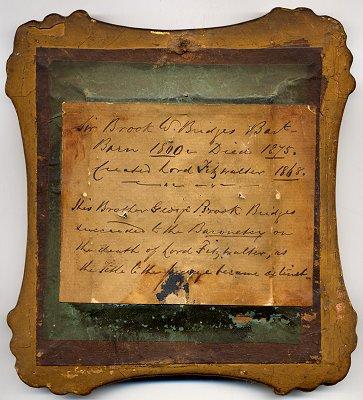 Sir Brook W. Bridges Bart.
Born 1800. Died 1875.
Created Lord Fitzwalter 1868.
His Brother George Brook Bridges
succeeded to the Baronetcy on
the death of Lord Fitzwalter, as
the title to the peerage became extinct